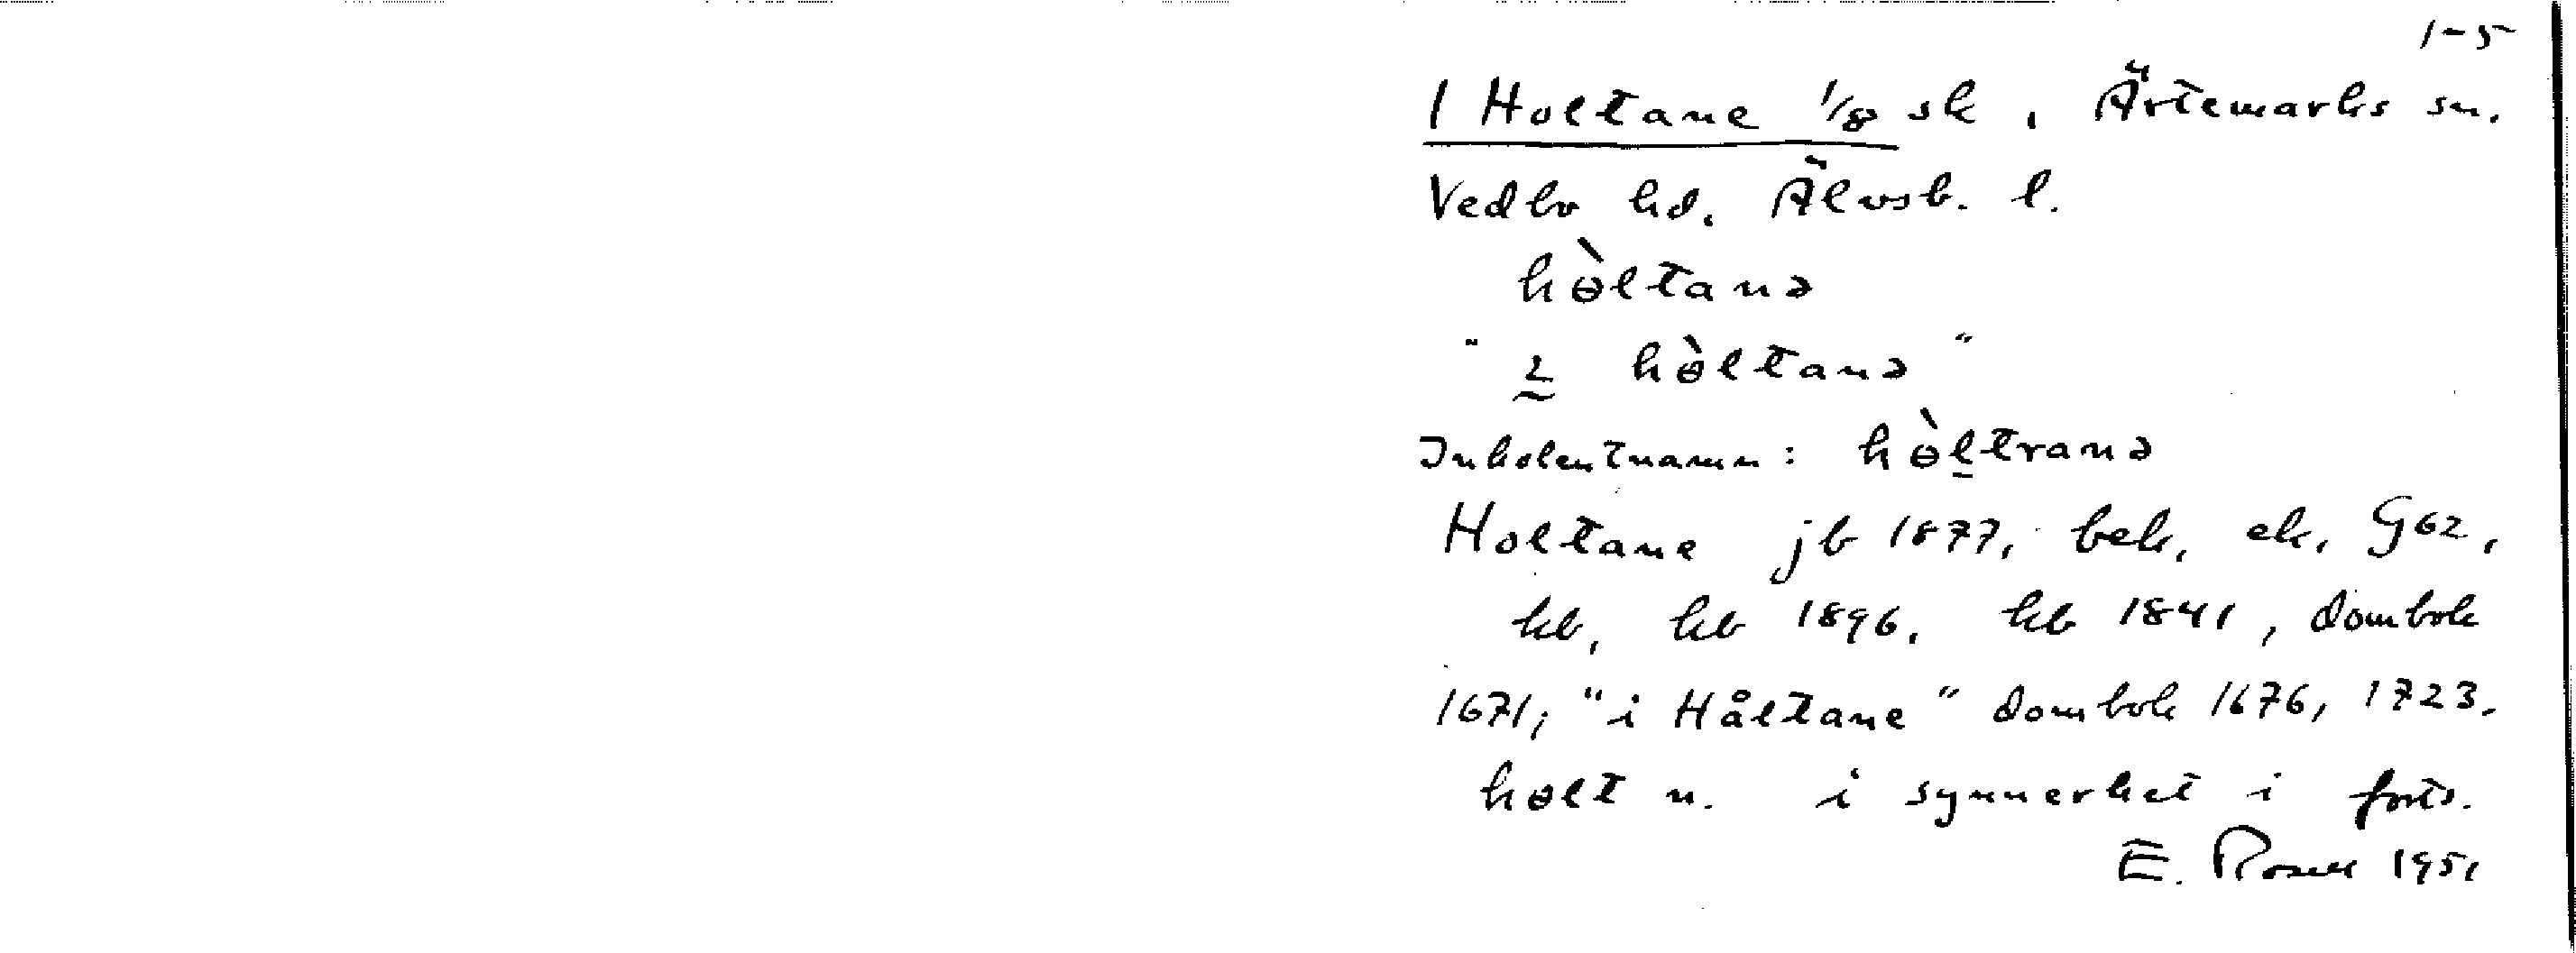 1-5
1 Holtane 1/8 sk, Ärtemarks sn.
Vedbo hd. Älvsb. l.
hɵ̀ltanə
" ɩ hɵ̀ltanə "
Inkolentnamn: hɵ̀ltranə
Holtane jb 1877, bek, ek, G 62,
kb, kb 1896, kb 1841, dombok
1671; "i Håltane" dombok 1676, 1723.
hɵlt n. i synnerhet i forts.
E. Rosell 1951